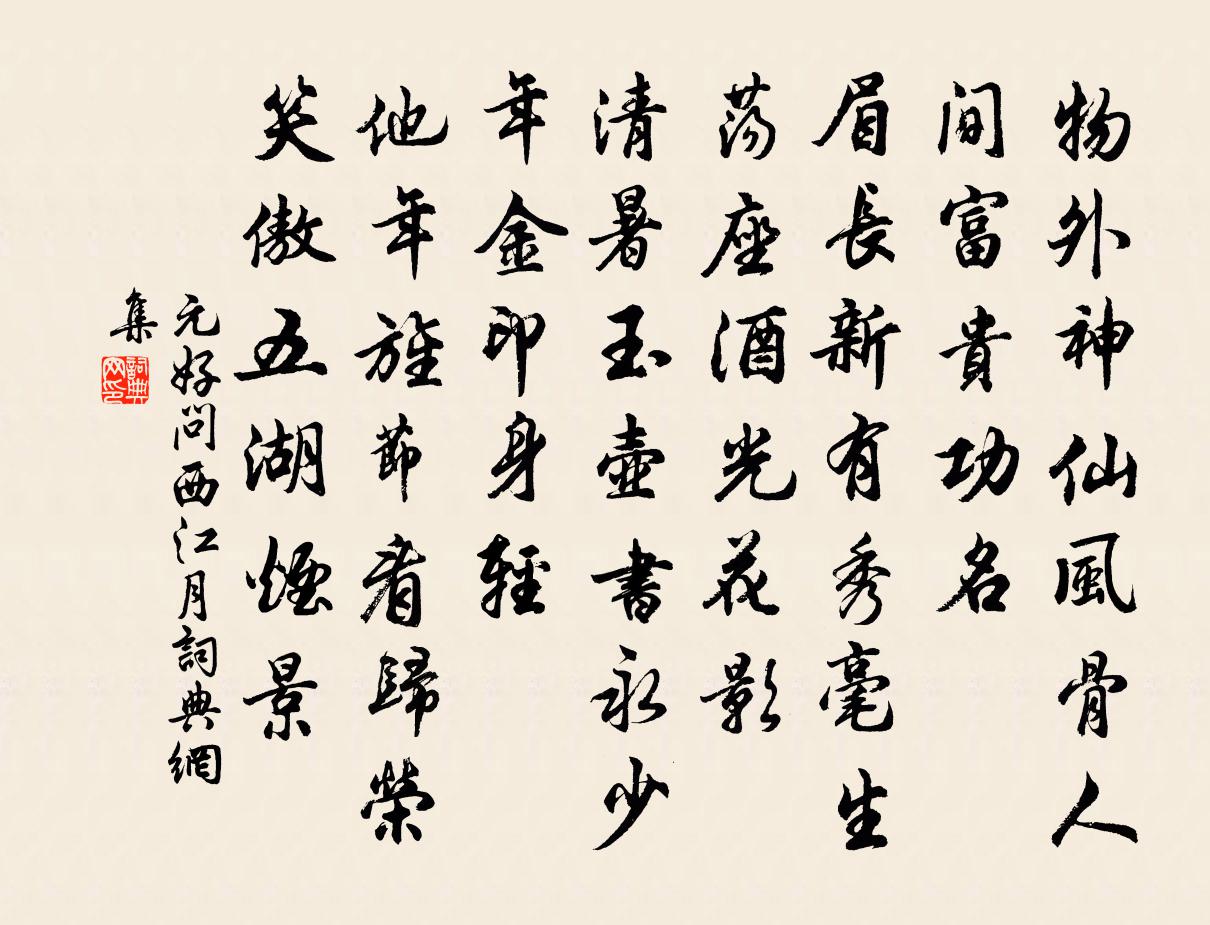 物外神仙風骨人
间富貴功名
眉長新有秀毫生
荡座酒光花影
清暑玉壺書永少
年金印身輕
他年旌節看歸榮
笑傲五湖煙景
元好问西江月詞典網
集
詞典
网印